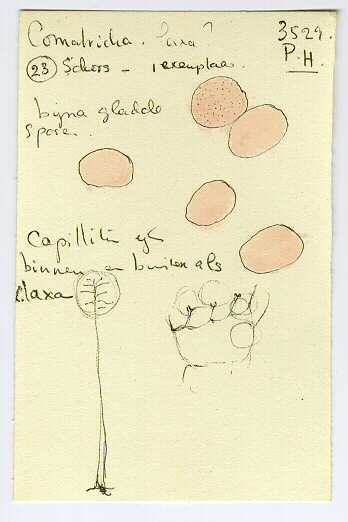 Comatricha. laxa? 3529.
P.H.
23 Schors - 1 exemplaar.
bijna gladde
sporen.
Capillitium
binnen en buiten als
C. laxa